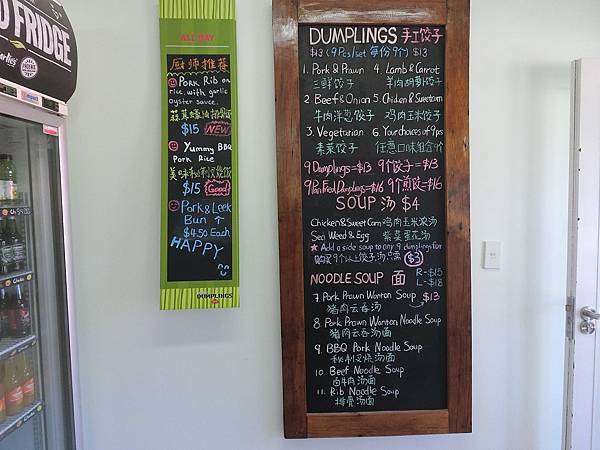 FRIDGE
ALL DAY
厨师推荐
PORK RIB on
rice, with garlic
oyster sauce.
$15 NEW!
Yummy BBQ
Pork Rice
$15 Good!
Pork & Leek
Bun 个
$4.50 Each
HAPPY
DUMPLINGS
DUMPLINGS 手工饺子
$13 (9Pcs/set 每份9个) $13
1. Pork & Prawn 4. Lamb & Carrot
三鲜饺子 羊肉胡萝卜饺子
2. Beef & Onion 5. Chicken & Sweetcorn
牛肉洋葱饺子 鸡肉玉米饺子
3. Vegetarian 6. Your choices of 9pcs
素菜饺子 任意口味组合9个
9 Dumplings=$13 9个饺子=$13
9 Pan Fried Dumplings=$16 9个煎饺=$16
SOUP 汤 $4
Chicken & Sweet Corn 鸡肉玉米浓汤
Sea Weed & Egg 紫菜蛋花汤
Add a side soup to any 9 dumplings for
购买9个以上饺子,汤只需 $3
NOODLE SOUP 面 R-$15
L-$18
7. Pork Prawn Wonton Soup $13
猪肉云吞汤
8. Pork Prawn Wonton Noodle Soup
猪肉云吞汤面
9. BBQ Pork Noodle Soup
秘制叉烧汤面
10. Beef Noodle Soup
卤牛肉汤面
11. Rib Noodle Soup
排骨汤面